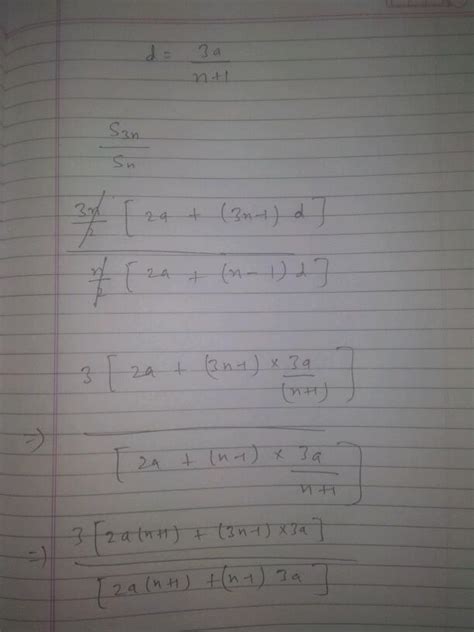 d = 3a
n+1
S3n
Sn
3n/2 [ 2a + (3n-1) d ]
n/2 [ 2a + (n-1) d ]
3 [ 2a + (3n-1) × 3a
(n+1) ]
=>
[ 2a + (n-1) × 3a
n+1 ]
3 [2a(n+1) + (3n-1) × 3a]
=>
[2a(n+1) + (n-1) 3a]